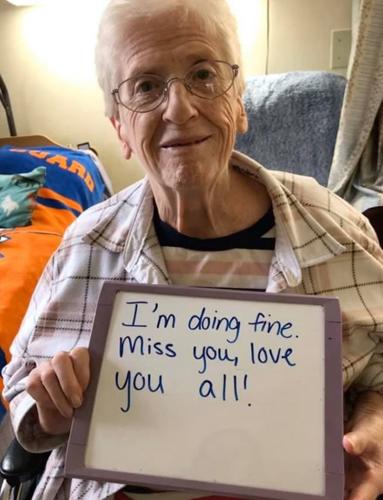 I'm doing fine.
Miss you, love
you all!